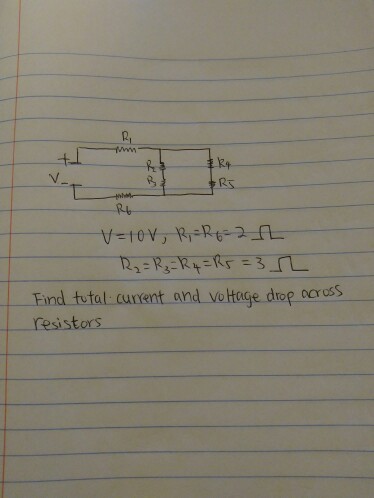 R1
+
R2
R4
V-
R3
R5
R6
V=10V, R1=R6=2 Ω
R2=R3=R4=R5=3 Ω
Find total current and voltage drop across
resistors